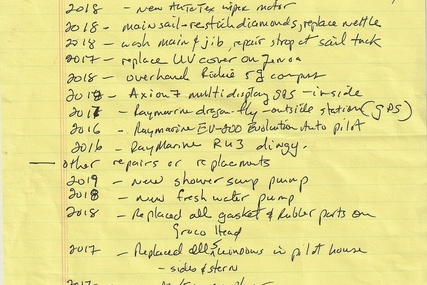 2018 - new AutoTex wiper motor
2018 - main sail - restitch diamonds, replace nettle
2018 - wash main & jib, repair strap at sail tack
2017 - replace UV cover on Genoa
2018 - overhaul Ritchie 5" compus
2018 - Axiom 7 multi display GPS - inside
2017 - Raymarine dragon-fly - outside station (GPS)
2016 - Raymarine EV-200 Evolution Auto pilot
2016 - RayMarine dingy.
— other repairs or replacments
2019 - new shower sump pump
2018 - new fresh water pump
2018 - Replaced all gasket & Rubber parts on
Groco Head
2017 - Replaced all 5 windows in pilot house
- sides & stern
2017 -